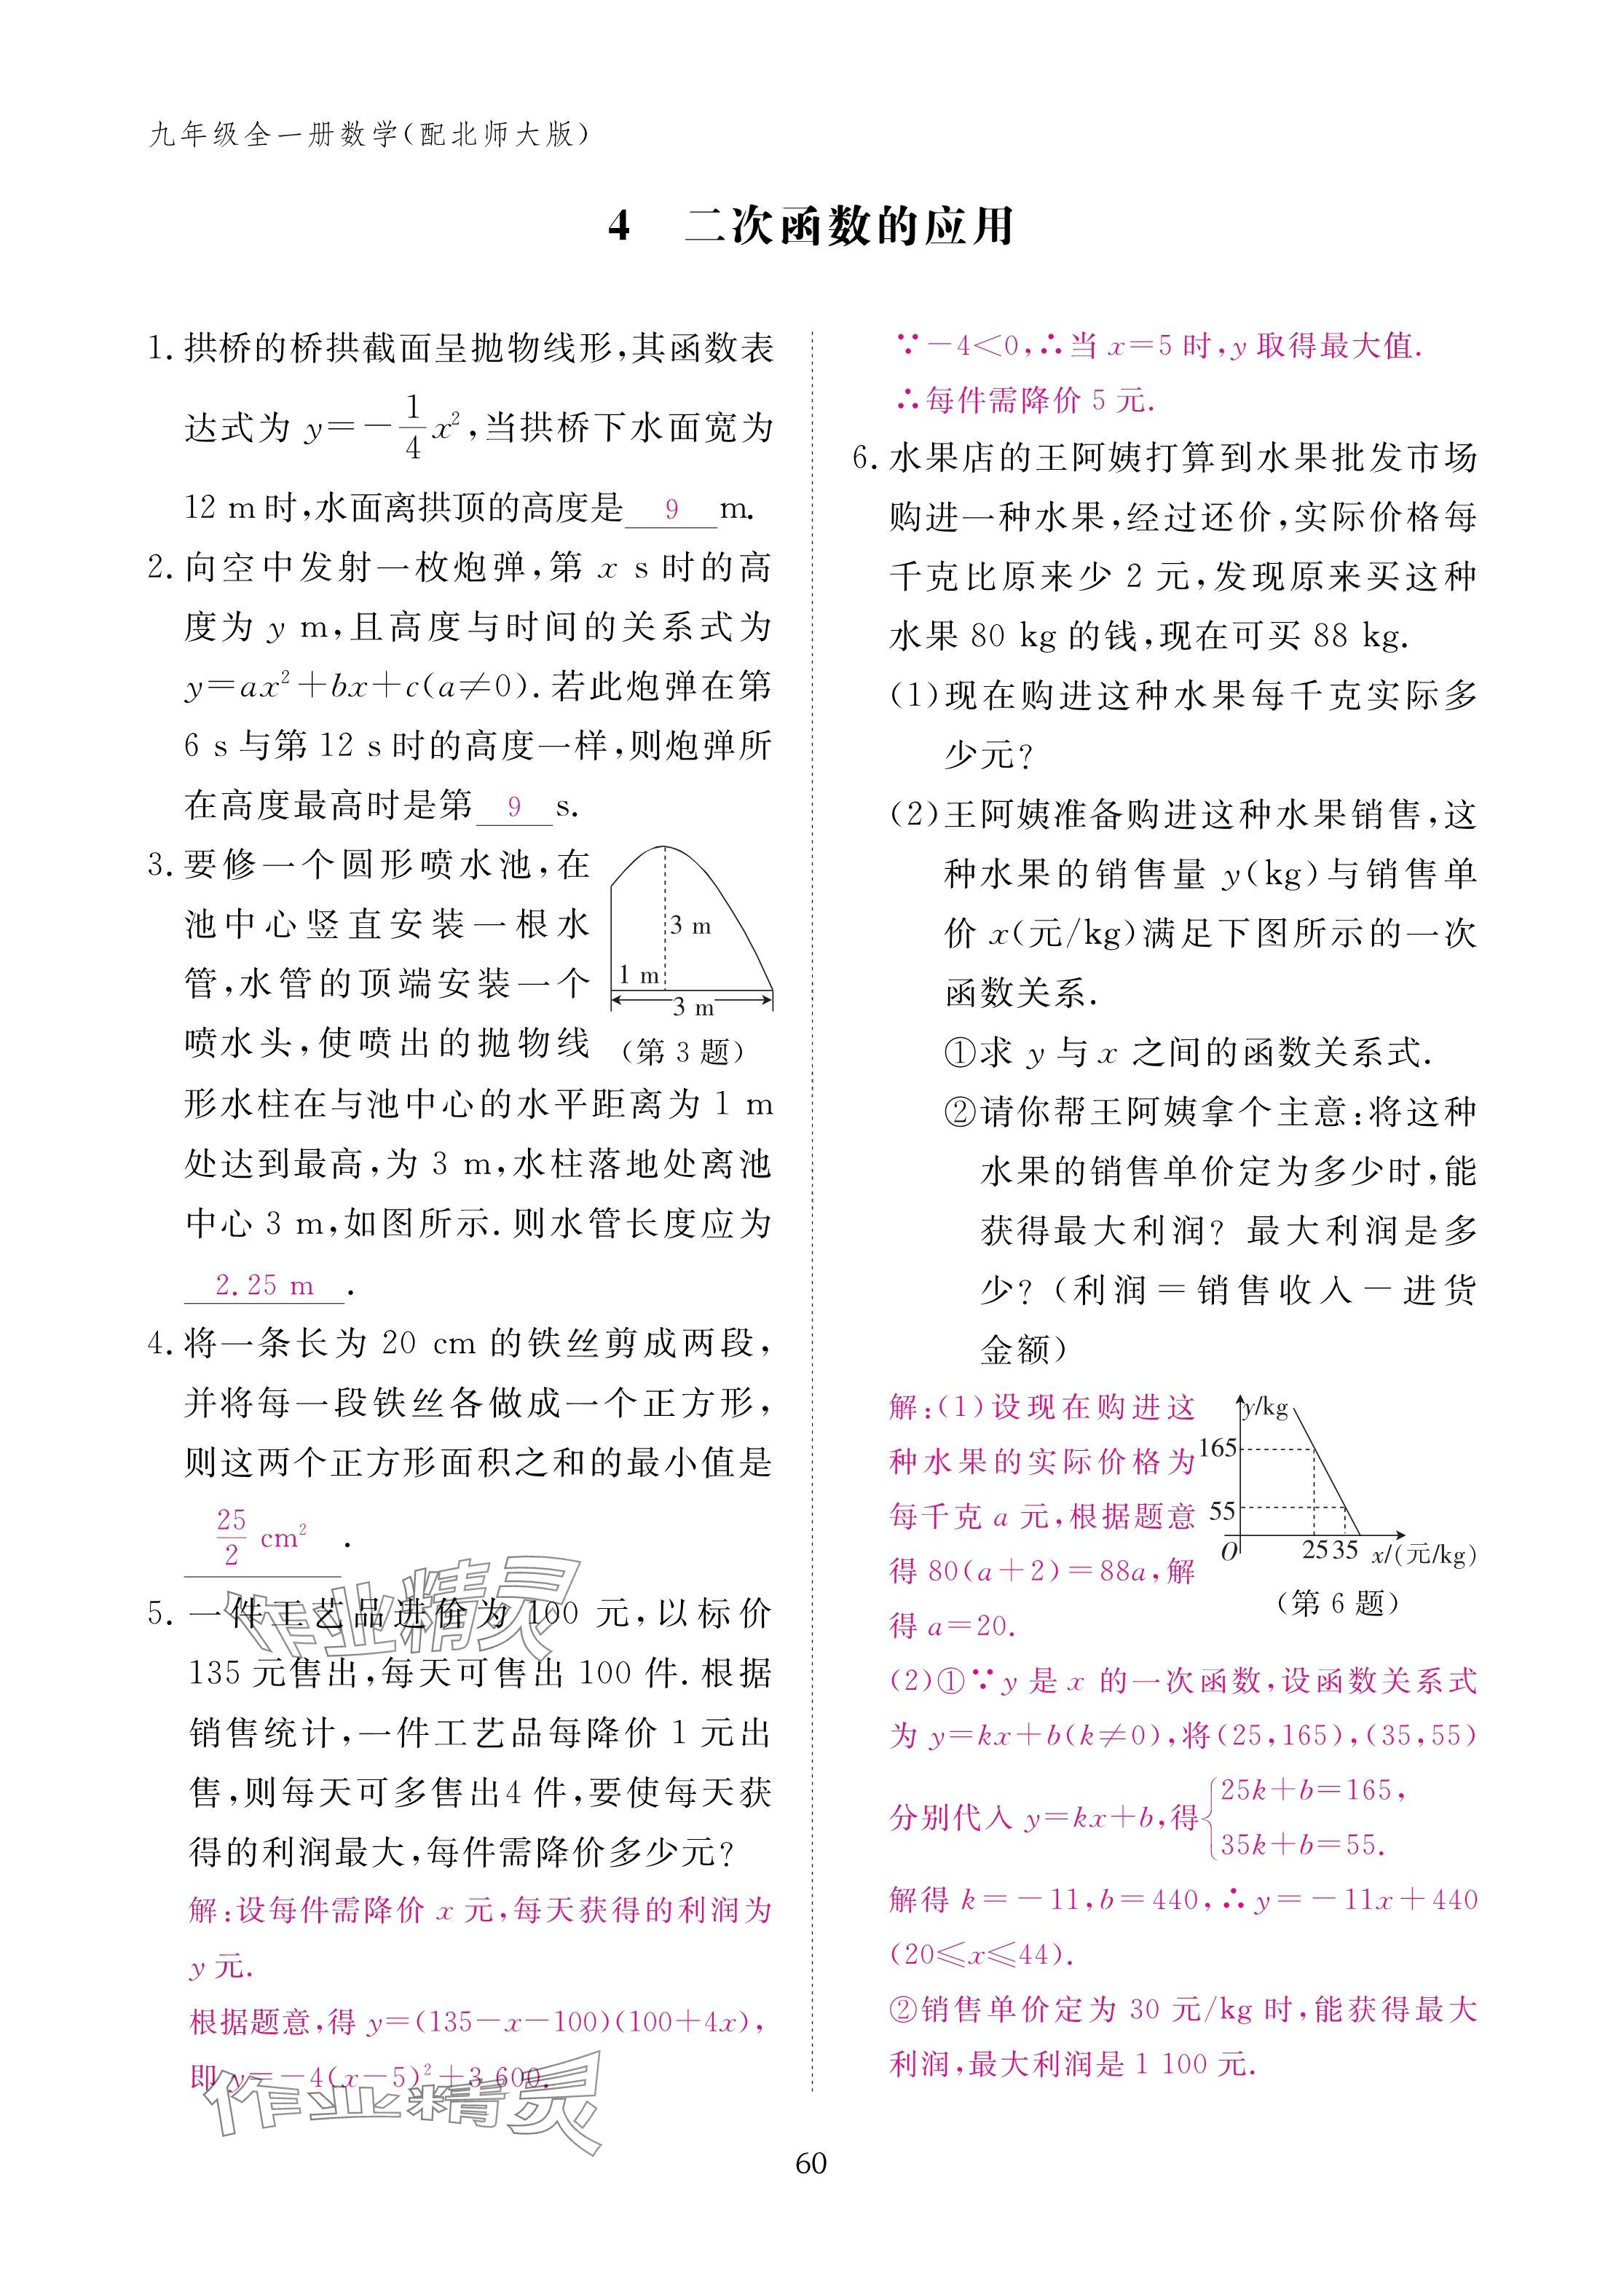 九年级全一册数学(配北师大版)
4 二次函数的应用
1. 拱桥的桥拱截面呈抛物线形,其函数表
达式为 y=-1/4x²,当拱桥下水面宽为
12 m时,水面离拱顶的高度是 9 m.
2. 向空中发射一枚炮弹,第 x s 时的高
度为 y m,且高度与时间的关系式为
y=ax²+bx+c(a≠0). 若此炮弹在第
6 s 与第 12 s 时的高度一样,则炮弹所
在高度最高时是第 9 s.
3. 要修一个圆形喷水池,在
池中心竖直安装一根水
管,水管的顶端安装一个
喷水头,使喷出的抛物线
形水柱在与池中心的水平距离为 1 m
处达到最高,为 3 m,水柱落地处离池
中心 3 m,如图所示. 则水管长度应为
2.25 m .
3 m
1 m
3 m
(第 3 题)
4. 将一条长为 20 cm 的铁丝剪成两段,
并将每一段铁丝各做成一个正方形,
则这两个正方形面积之和的最小值是
25/2 cm² .
5. 一件工艺品进价为 100 元,以标价
135 元售出,每天可售出 100 件. 根据
销售统计,一件工艺品每降价 1 元出
售,则每天可多售出4 件,要使每天获
得的利润最大,每件需降价多少元?
解:设每件需降价 x 元,每天获得的利润为
y 元.
根据题意,得 y=(135-x-100)(100+4x),
即 y=-4(x-5)²+3 600.
∵-4<0,∴当 x=5 时,y 取得最大值.
∴每件需降价 5 元.
6. 水果店的王阿姨打算到水果批发市场
购进一种水果,经过还价,实际价格每
千克比原来少 2 元,发现原来买这种
水果 80 kg 的钱,现在可买 88 kg.
(1)现在购进这种水果每千克实际多
少元?
(2)王阿姨准备购进这种水果销售,这
种水果的销售量 y(kg)与销售单
价 x(元/kg)满足下图所示的一次
函数关系.
①求 y 与 x 之间的函数关系式.
②请你帮王阿姨拿个主意:将这种
水果的销售单价定为多少时,能
获得最大利润? 最大利润是多
少?(利润=销售收入-进货
金额)
解:(1)设现在购进这
种水果的实际价格为
每千克 a 元,根据题意
得 80(a+2)=88a,解
得 a=20.
y/kg
165
55
O
25 35 x/(元/kg)
(第 6 题)
(2)①∵y 是 x 的一次函数,设函数关系式
为 y=kx+b(k≠0),将(25,165),(35,55)
分别代入 y=kx+b,得{25k+b=165,
35k+b=55.
解得 k=-11,b=440,∴y=-11x+440
(20≤x≤44).
②销售单价定为 30 元/kg 时,能获得最大
利润,最大利润是 1 100 元.
作业精灵
作业精灵
60